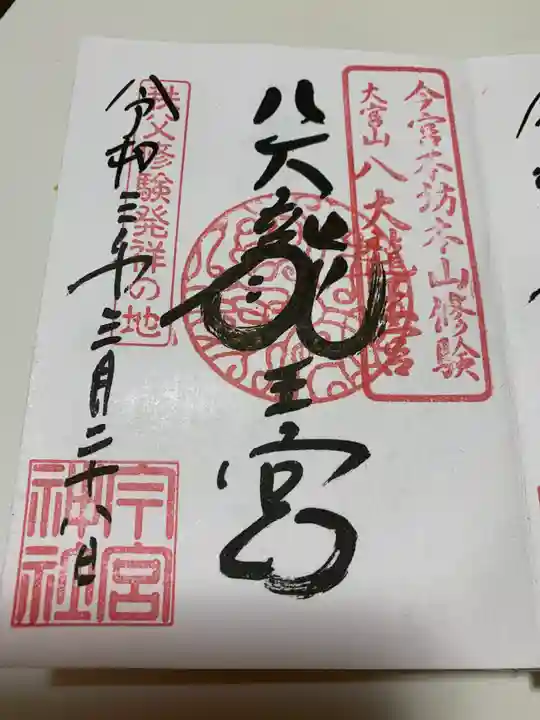 今宮本坊本山修験
大宮山 八大龍王宮
八大龍王宮
秩父修験発祥の地
令和三年三月二十八日
今宮
神社